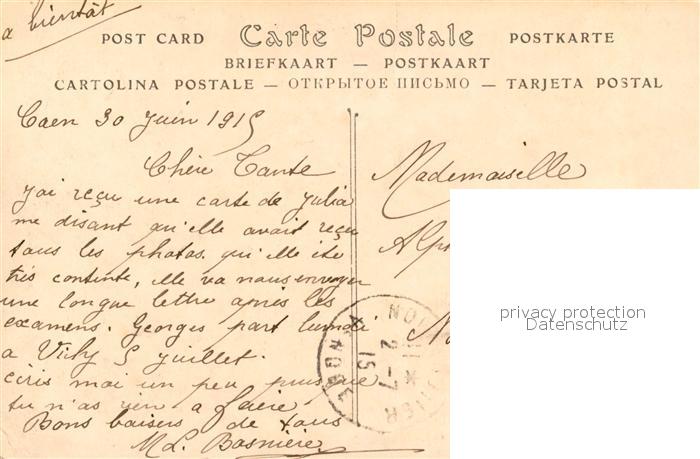 a bientôt
POST CARD Carte Postale POSTKARTE
BRIEFKAART — POSTKAART
CARTOLINA POSTALE — ОТКРЫТОЕ ПИСЬМО — TARJETA POSTAL
Caen 30 Juin 1915
Chère Tante
J'ai reçu une carte de Julia
me disant qu'elle avait reçu
tous les photos. qu'elle ete
très contente, elle va nous envoyer
une longue lettre après les
examens. Georges part lundi
a Vichy 5 juillet.
ecris moi un peu puisque
tu n'as rien a faire
Bons baisers de tous
M L. Basnière
Mademaiselle
privacy protection
Datenschutz
2-7
15